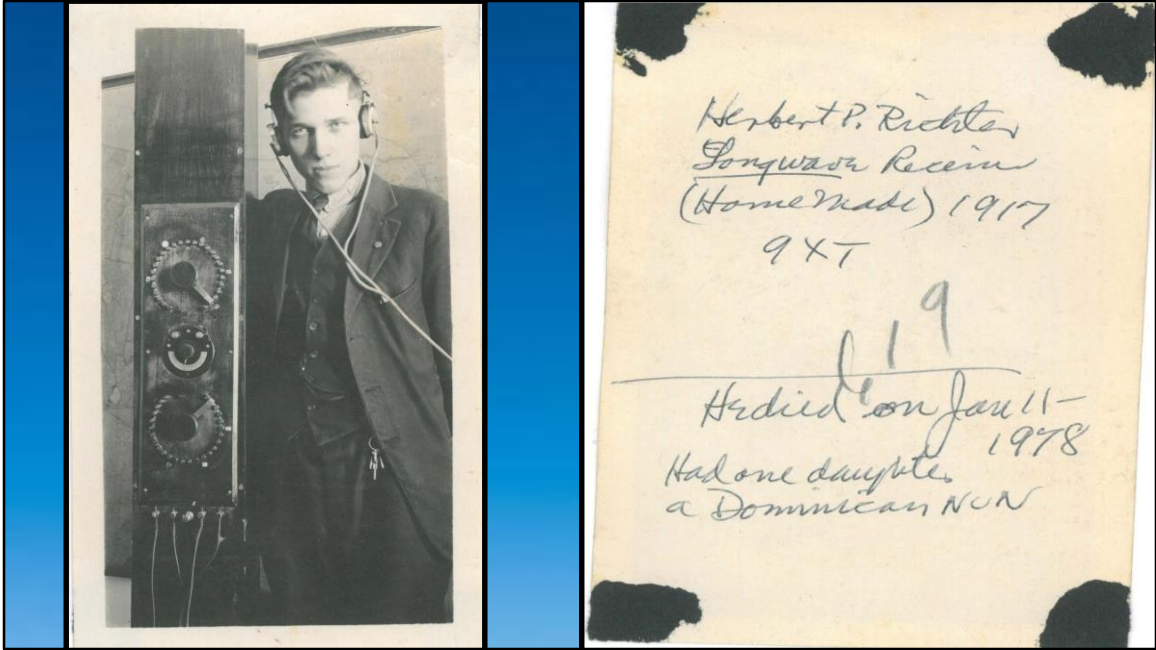 Herbert P. Richter
Longwave Receiver
(Home Made) 1917
9XT
19
He died on Jan 11-
1978
Had one daughter
a Dominican NUN